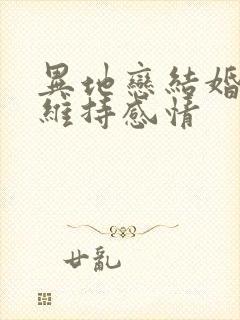 異地戀結婚
維持感情
廿亂